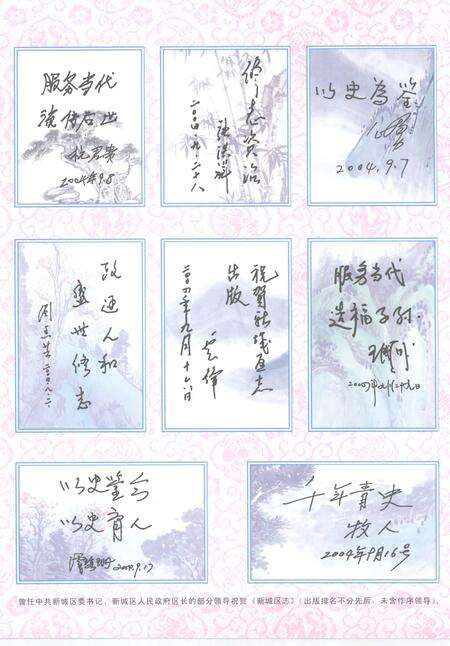 服务当代
流传后世
2004年9.8
修志资治
二〇〇四.九.二十八
以史为鉴
2004.9.7
政通人和
盛世修志
祝贺新城区志
出版
二〇〇四年九月十六日
服务当代
造福子孙
以史鉴今
以史育人
2004.9.17
千年青史
牧人
2004年9月16号
曾任中共新城区委书记、新城区人民政府区长的部分领导祝贺《新城区志》（出版排名不分先后，未含作序领导）。